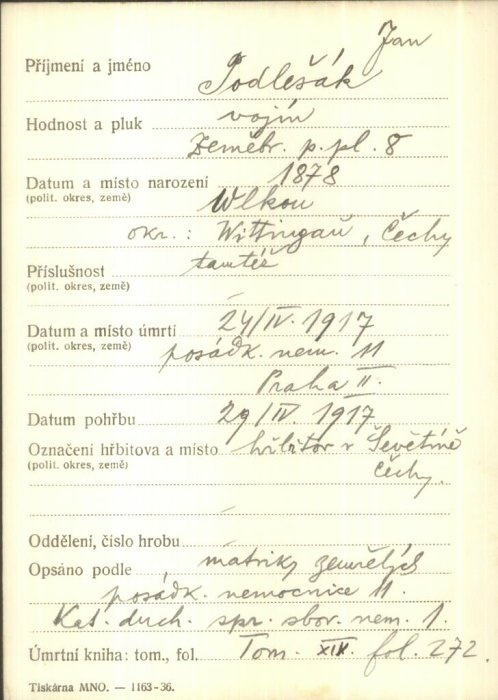 Jan
Příjmení a jméno Podlešák
Hodnost a pluk vojín
Zeměbr. p. pl. 8
Datum a místo narození 1878
(polit. okres, země) Wlkou
okr.: Wittingau, Čechy
Příslušnost tamtéž
(polit. okres, země) –
Datum a místo úmrtí 24/IV. 1917
(polit. okres, země) posádk. nem. 11
Praha II.
Datum pohřbu 29/IV. 1917
Označení hřbitova a místo hřbitov v Ševětíně
(polit. okres, země) Čechy.
–
Oddělení, číslo hrobu –
Opsáno podle matriky zemřelých
posádk. nemocnice 11.
Kat. duch. spr. sbor. nem. 1.
Úmrtní kniha: tom., fol. Tom. XIV. fol. 272.
Tiskárna MNO. — 1163-36.